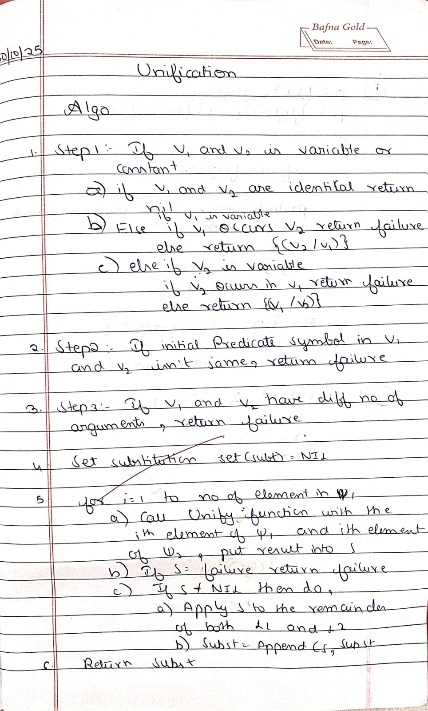 Bafna Gold
Date: Page:
10/25
Unification
Algo
1. Step 1:- If V1 and V2 is variable or
constant
a) if V1 and V2 are identical return
nil
if V1 is variable
b) Else if V1 occurs V2 return failure
else return {(V2/V1)}
c) else if V2 is variable
if V2 occurs in V1 return failure
else return {(V1/V2)}
2. Step 2:- If initial Predicate symbol in V1
and V2 isn't same, return failure
3. Step 3:- If V1 and V2 have diff no of
arguments, return failure
4 Set substitution set (subst) = NIL
5 for i=1 to no of element in Ψ1
a) Call Unify function with the
ith element of Ψ1 and ith element
of Ψ2, put result into S
b) If S = failure return failure
c) If S ≠ NIL then do,
a) Apply S to the remainder
of both L1 and L2
b) Subst = Append (S, Subst
6. Return subst